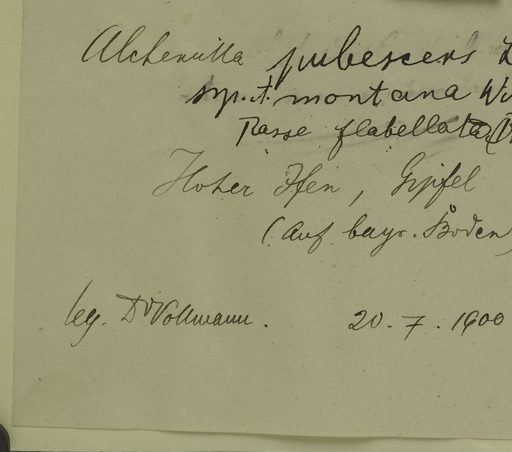 Alchemilla pubescens L
montana W
Rasse flabellata (B
Hoher Ifen, Gipfel
(Auf bayr. Boden)
leg. Dr Vollmann.
20. 7. 1900